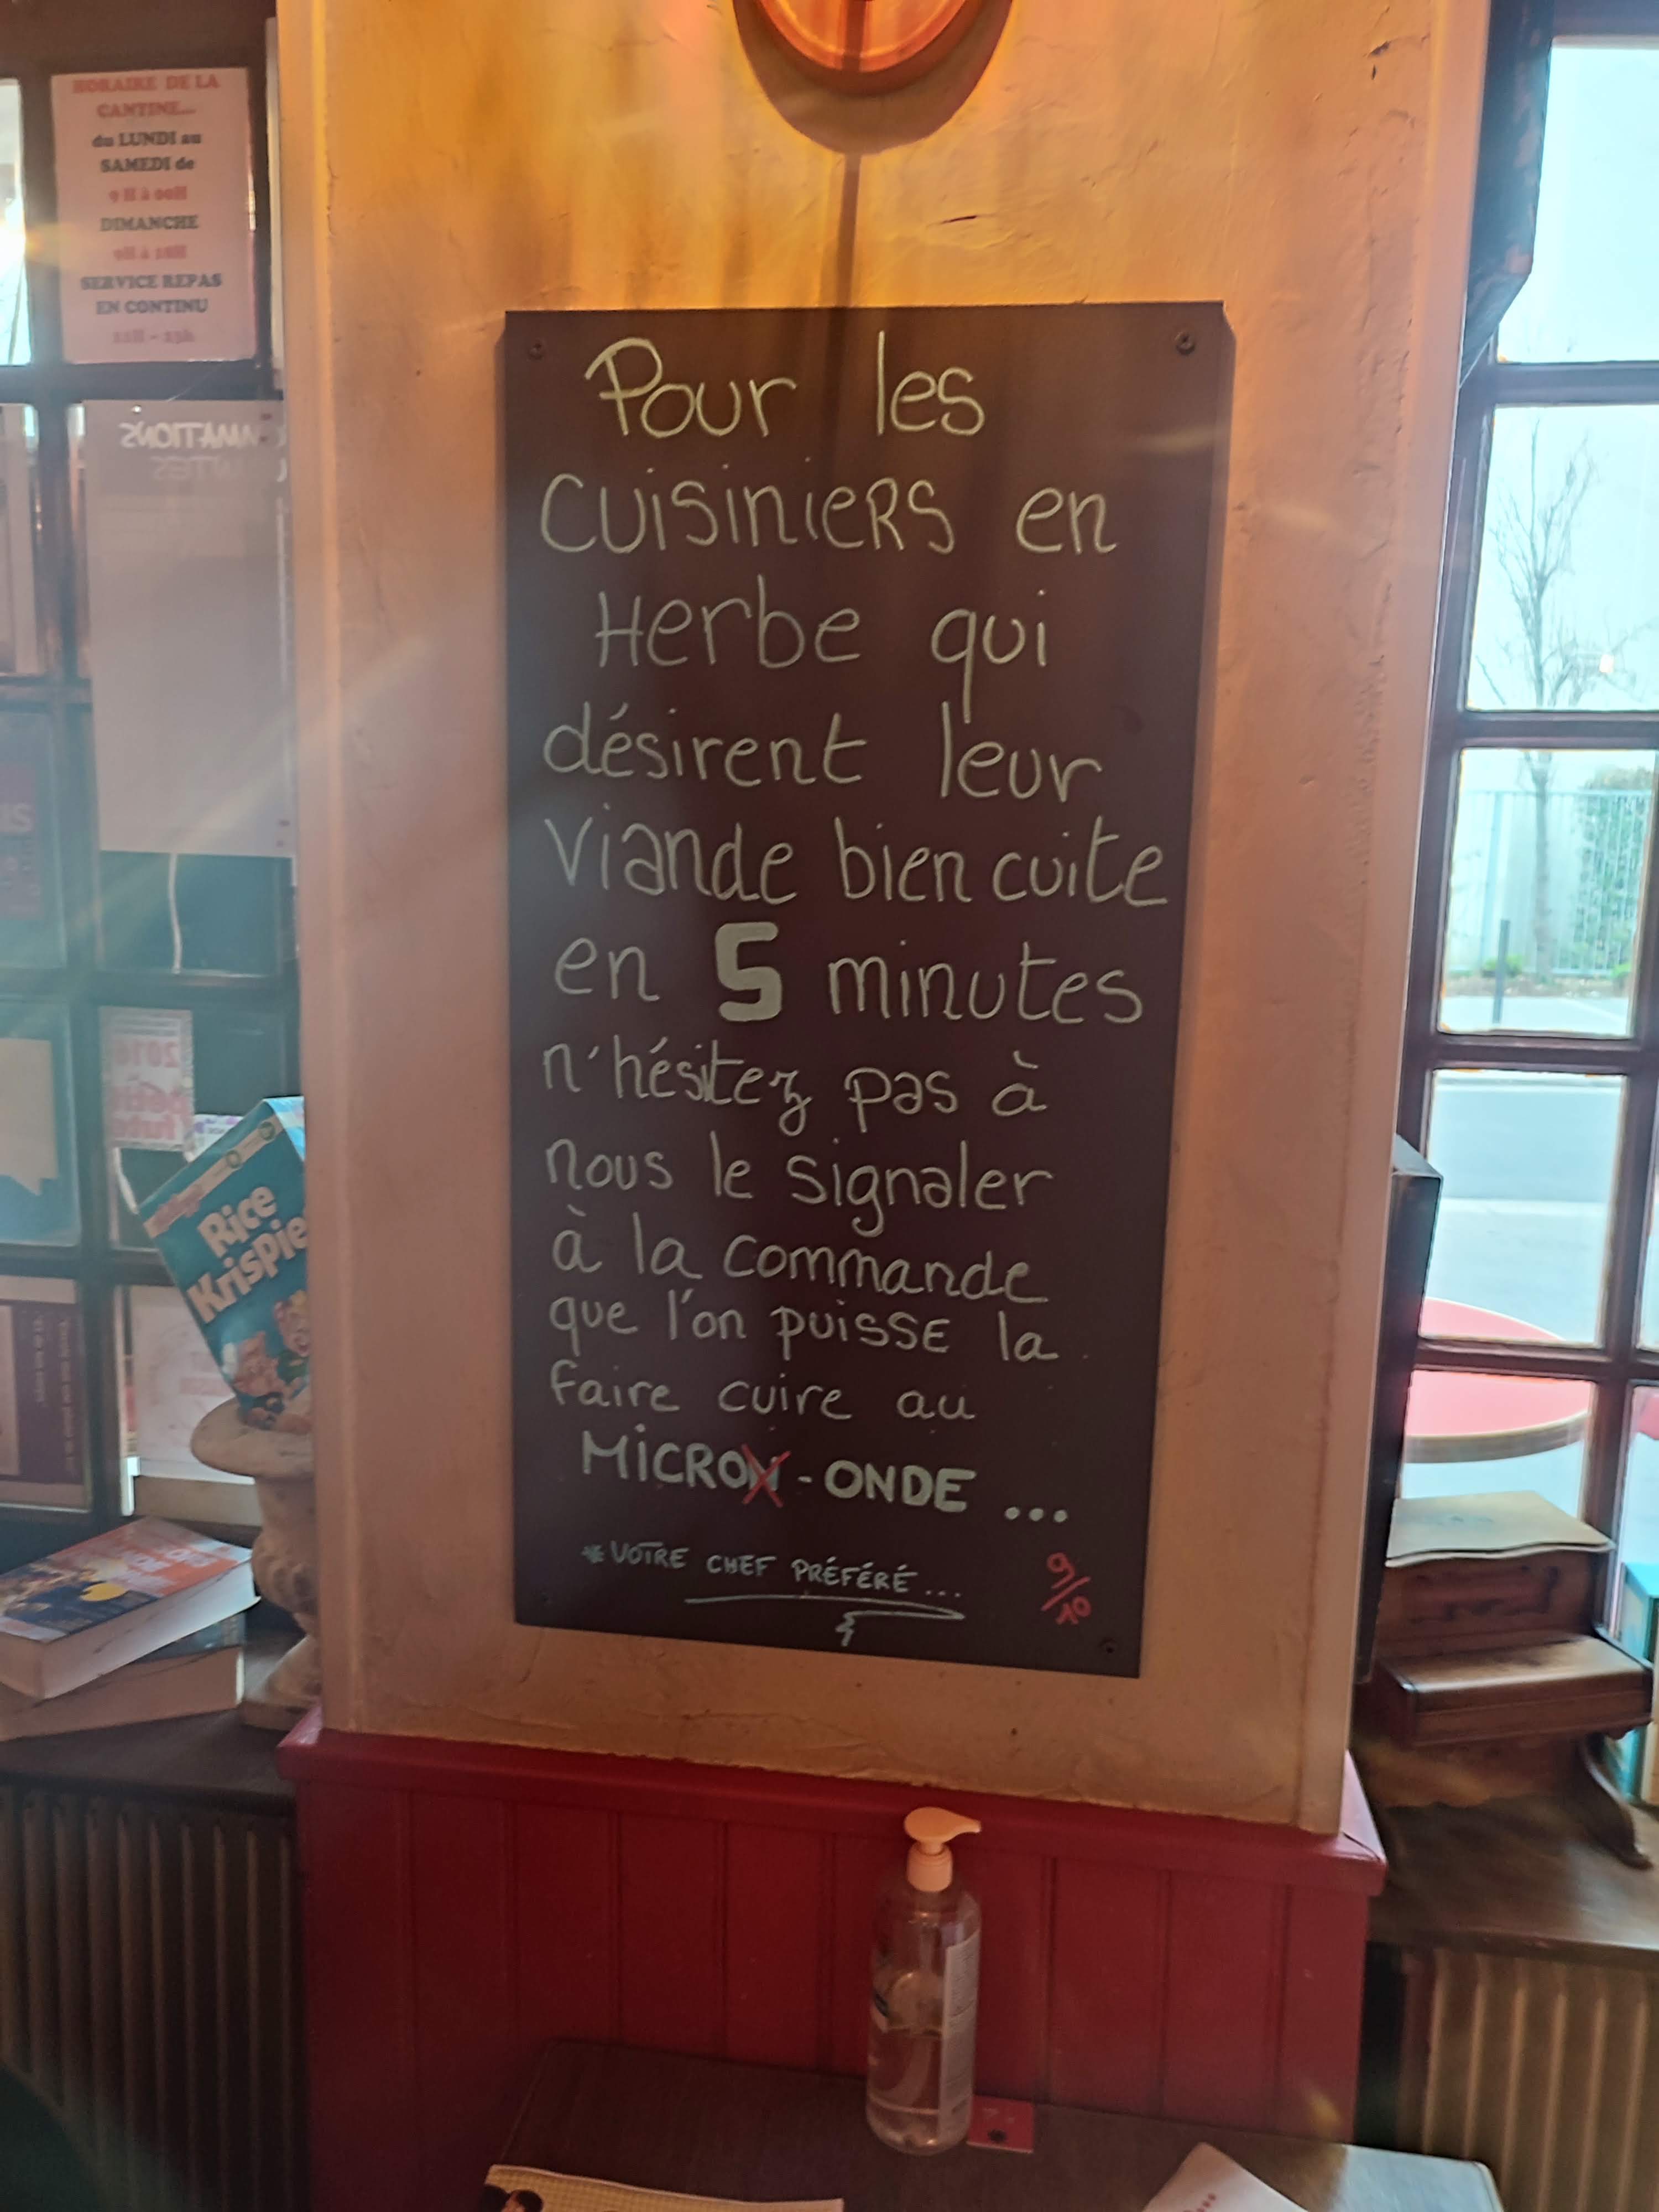 HORAIRE DE LA
CANTINE...
du LUNDI au
SAMEDI de
9H à 00H
DIMANCHE
SERVICE REPAS
EN CONTINU
Pour les
cuisiniers en
Herbe qui
désirent leur
viande bien cuite
en 5 minutes
n'hésitez pas à
nous le signaler
à la commande
que l'on puisse la
faire cuire au
MICRON-ONDE ...
*VOTRE CHEF PRÉFÉRÉ...
9/10
Rice
Krispie